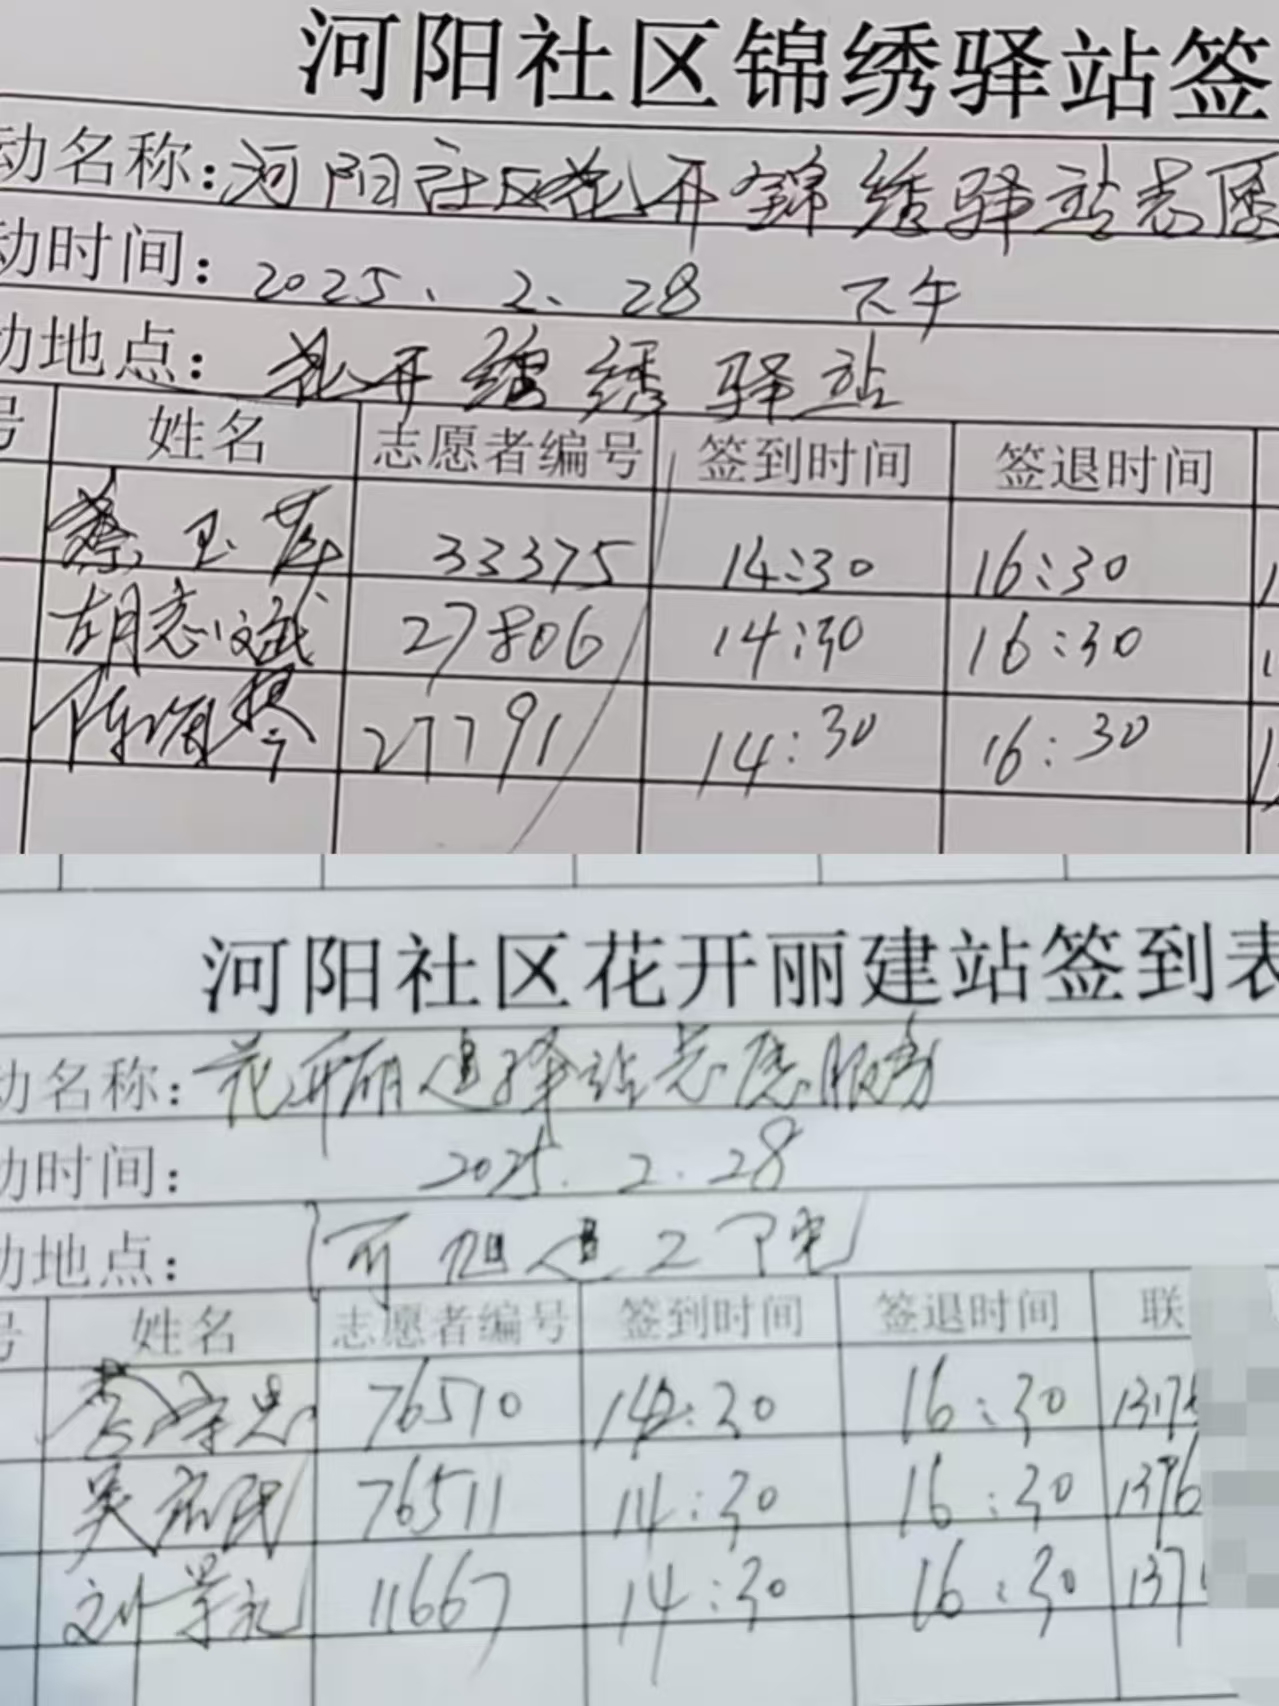 河阳社区锦绣驿站签
动名称：河阳社区花开锦绣驿站志愿
动时间：2025、2、28 下午
动地点：花开锦绣驿站
号 姓名 志愿者编号 签到时间 签退时间
蔡玉萍 33375 14:30 16:30
胡志斌 27806 14:30 16:30
陈 27791 14:30 16:30
河阳社区花开丽建站签到表
动名称：花开丽建驿站志愿服务
动时间：2025.2.28
动地点：
号 姓名 志愿者编号 签到时间 签退时间 联
76510 14:30 16:30 1317
吴 民 76511 14:30 16:30 1396
刘学礼 11667 14:30 16:30 137